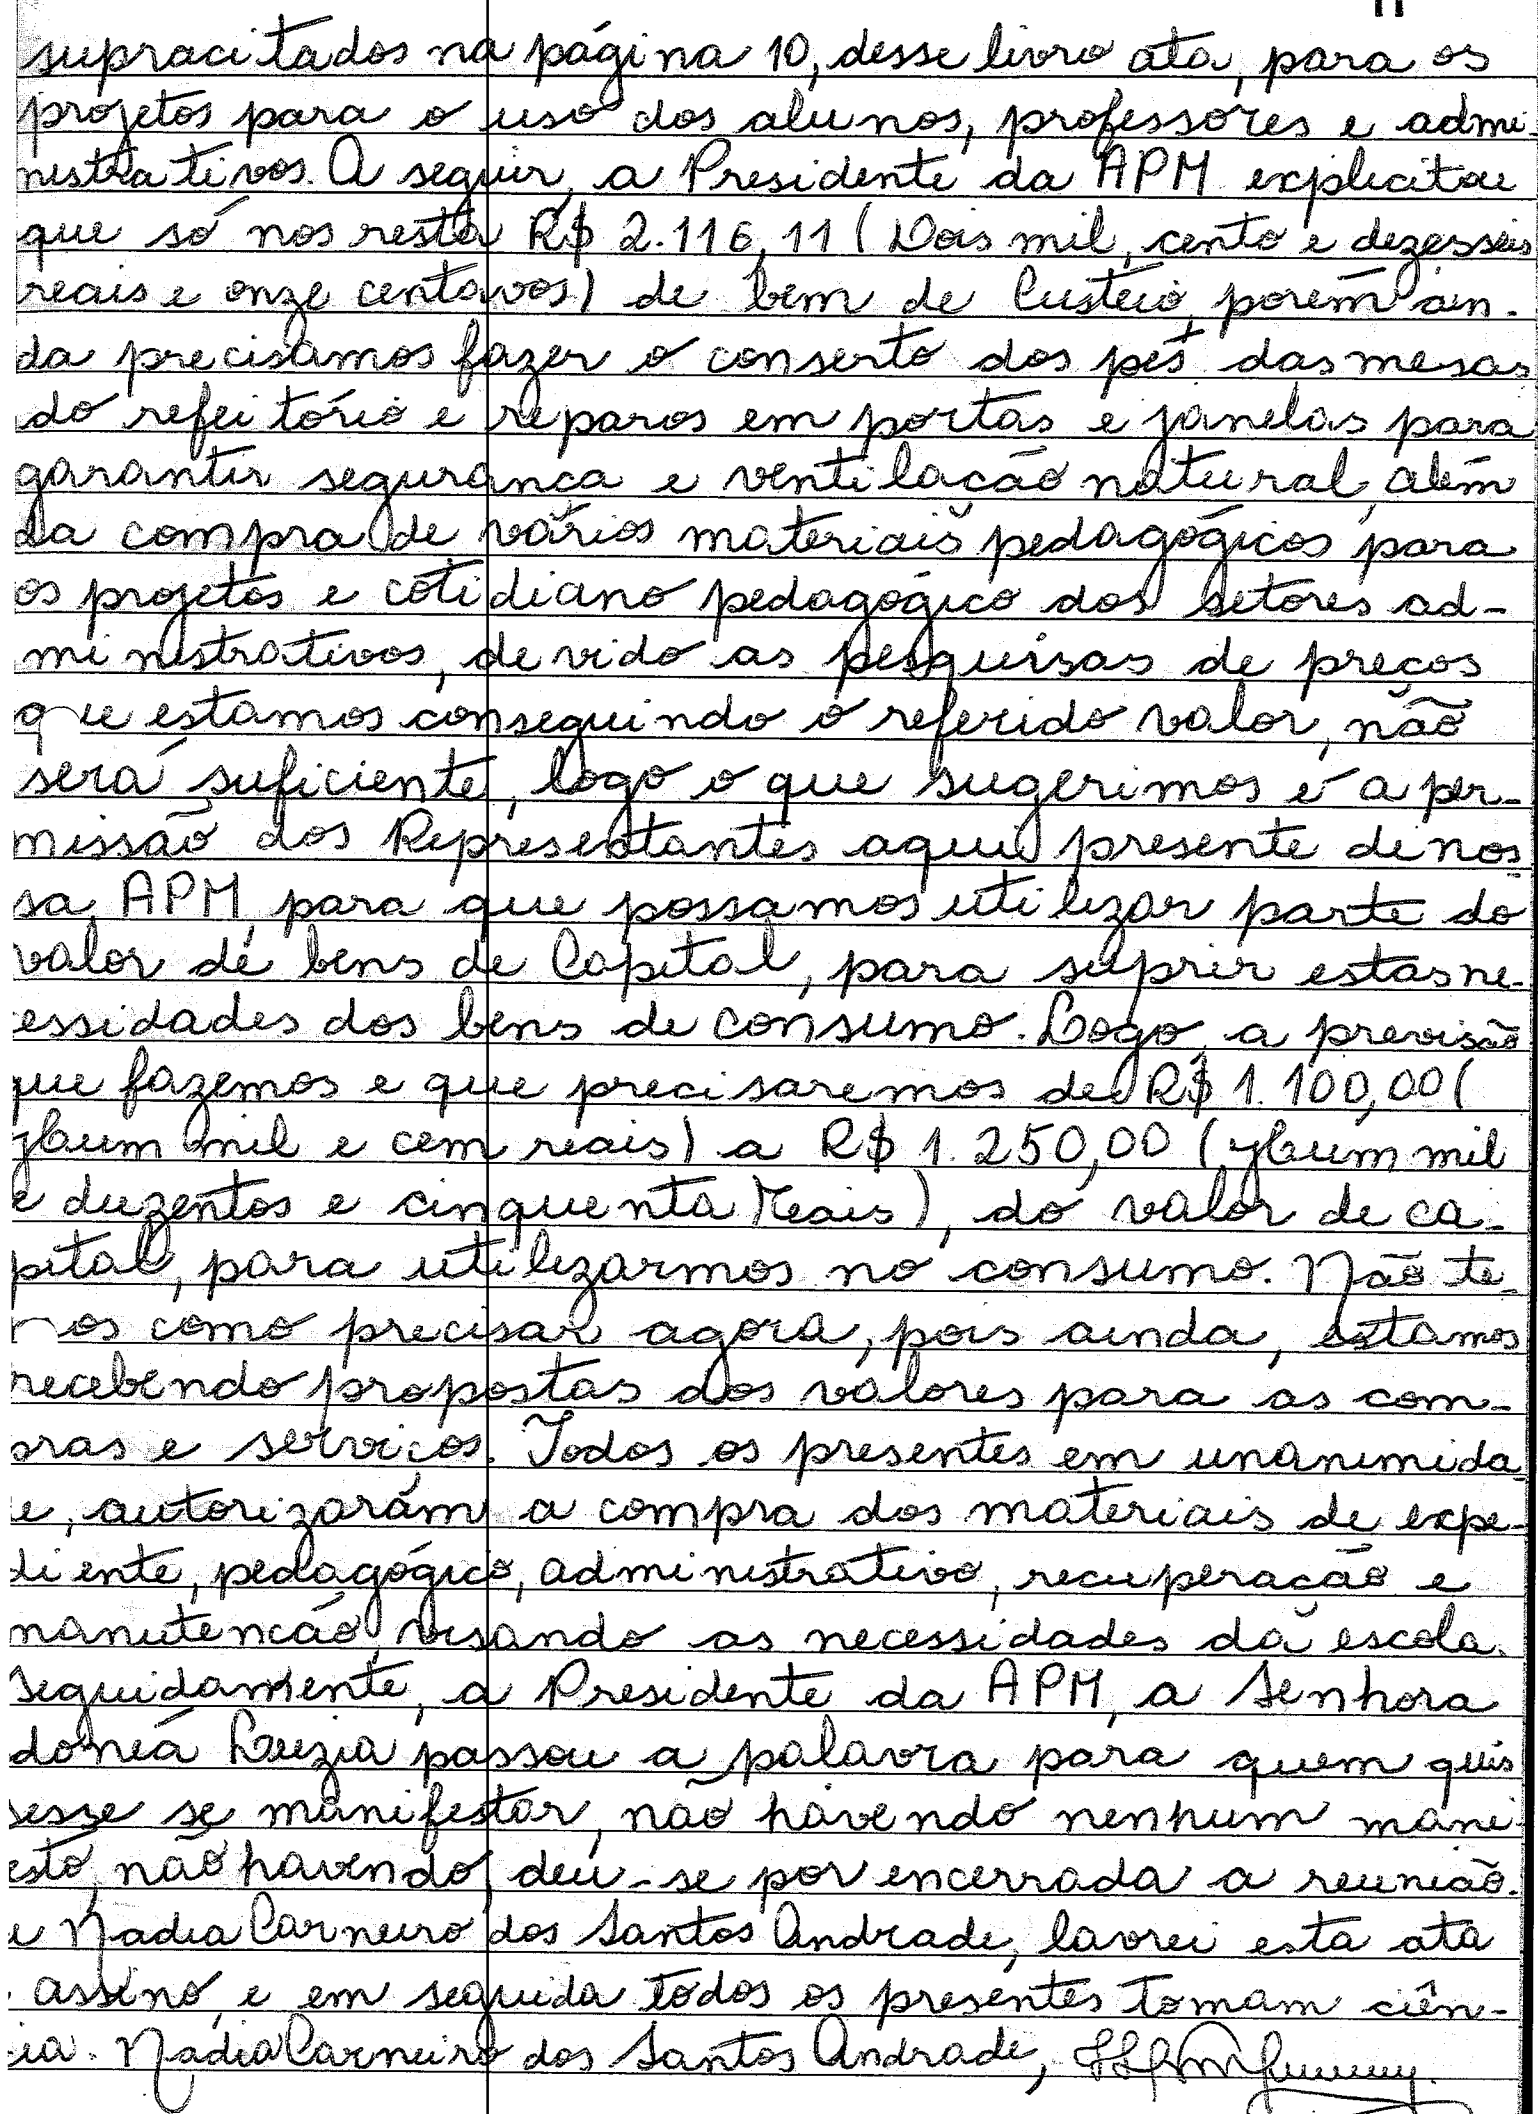 11
supracitados na página 10, desse livro ata, para os
projetos para o uso dos alunos, professores e admi-
nistrativos. A seguir, a Presidente da APM explicitou
que só nos resta R$ 2.116,11 (Dois mil, cento e dezesseis
reais e onze centavos) de bem de Custeio, porém ain-
da precisamos fazer o conserto dos pés das mesas
do refeitório e reparos em portas e janelas para
garantir segurança e ventilação natural, além
da compra de vários materiais pedagógicos para
os projetos e cotidiano pedagógico dos setores ad-
ministrativos, devido as pesquisas de preços
que estamos conseguindo o referido valor, não
será suficiente, logo o que sugerimos é a per-
missão dos Representantes aqui presente de nos-
sa, APM, para que possamos utilizar parte do
valor de bens de Capital, para suprir estas ne-
essidades dos bens de consumo. Logo, a previsão
que fazemos e que precisaremos de R$ 1.100,00 (
Hum mil e cem reais) a R$ 1.250,00 (Hum mil
e duzentos e cinquenta reais), do valor de ca-
pital, para utilizarmos no consumo. Não te-
os como precisar agora, pois ainda, estamos
recebendo propostas dos valores para as com-
pras e serviços. Todos os presentes em unanimida-
e, autorizaram a compra dos materiais de expe-
diente, pedagógico, administrativo, recuperação e
manutenção, visando as necessidades da escola.
Seguidamente, a Presidente da APM, a Senhora
doneá Luzia passou a palavra para quem quis
sesse se manifestar, não havendo nenhum mani-
esto, não havendo, deu-se por encerrada a reunião.
u Nadia Carneiro dos Santos Andrade, lavrei esta ata
assino, e em seguida todos os presentes tomam ciên-
cia. Nadia Carneiro dos Santos Andrade,